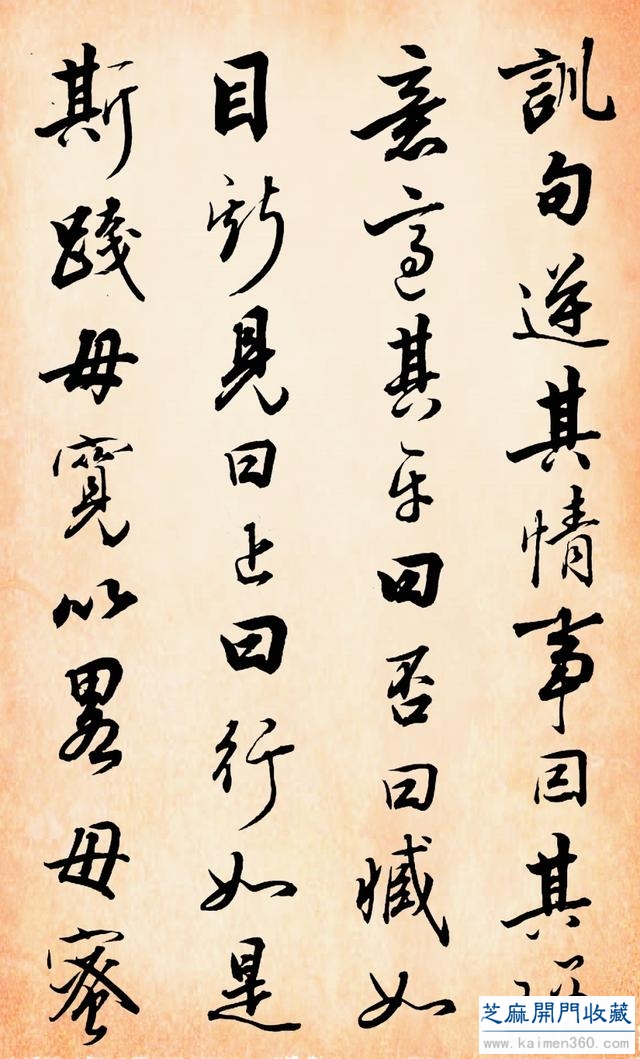 訓句逆其情事因其
意適其平曰否曰臧如
目斯見曰止曰行如是
斯踐毋寬以畧毋蜜
芝麻開門收藏
www.kaimen360.com